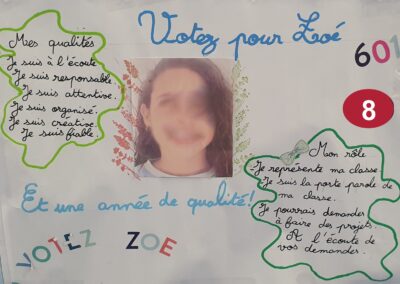 Votez pour Zoé
601
8
Mes qualités
Je suis à l'écoute
Je suis responsable.
Je suis attentive.
Je suis organisé.
Je suis creative.
Je suis fiable.
Et une année de qualité!
Mon rôle
Je représente ma classe
Je suis la porte parole de
ma classe.
Je pourrais demander
à faire des projets.
A l'écoute de
vos demandes.
VOTEZ ZOE